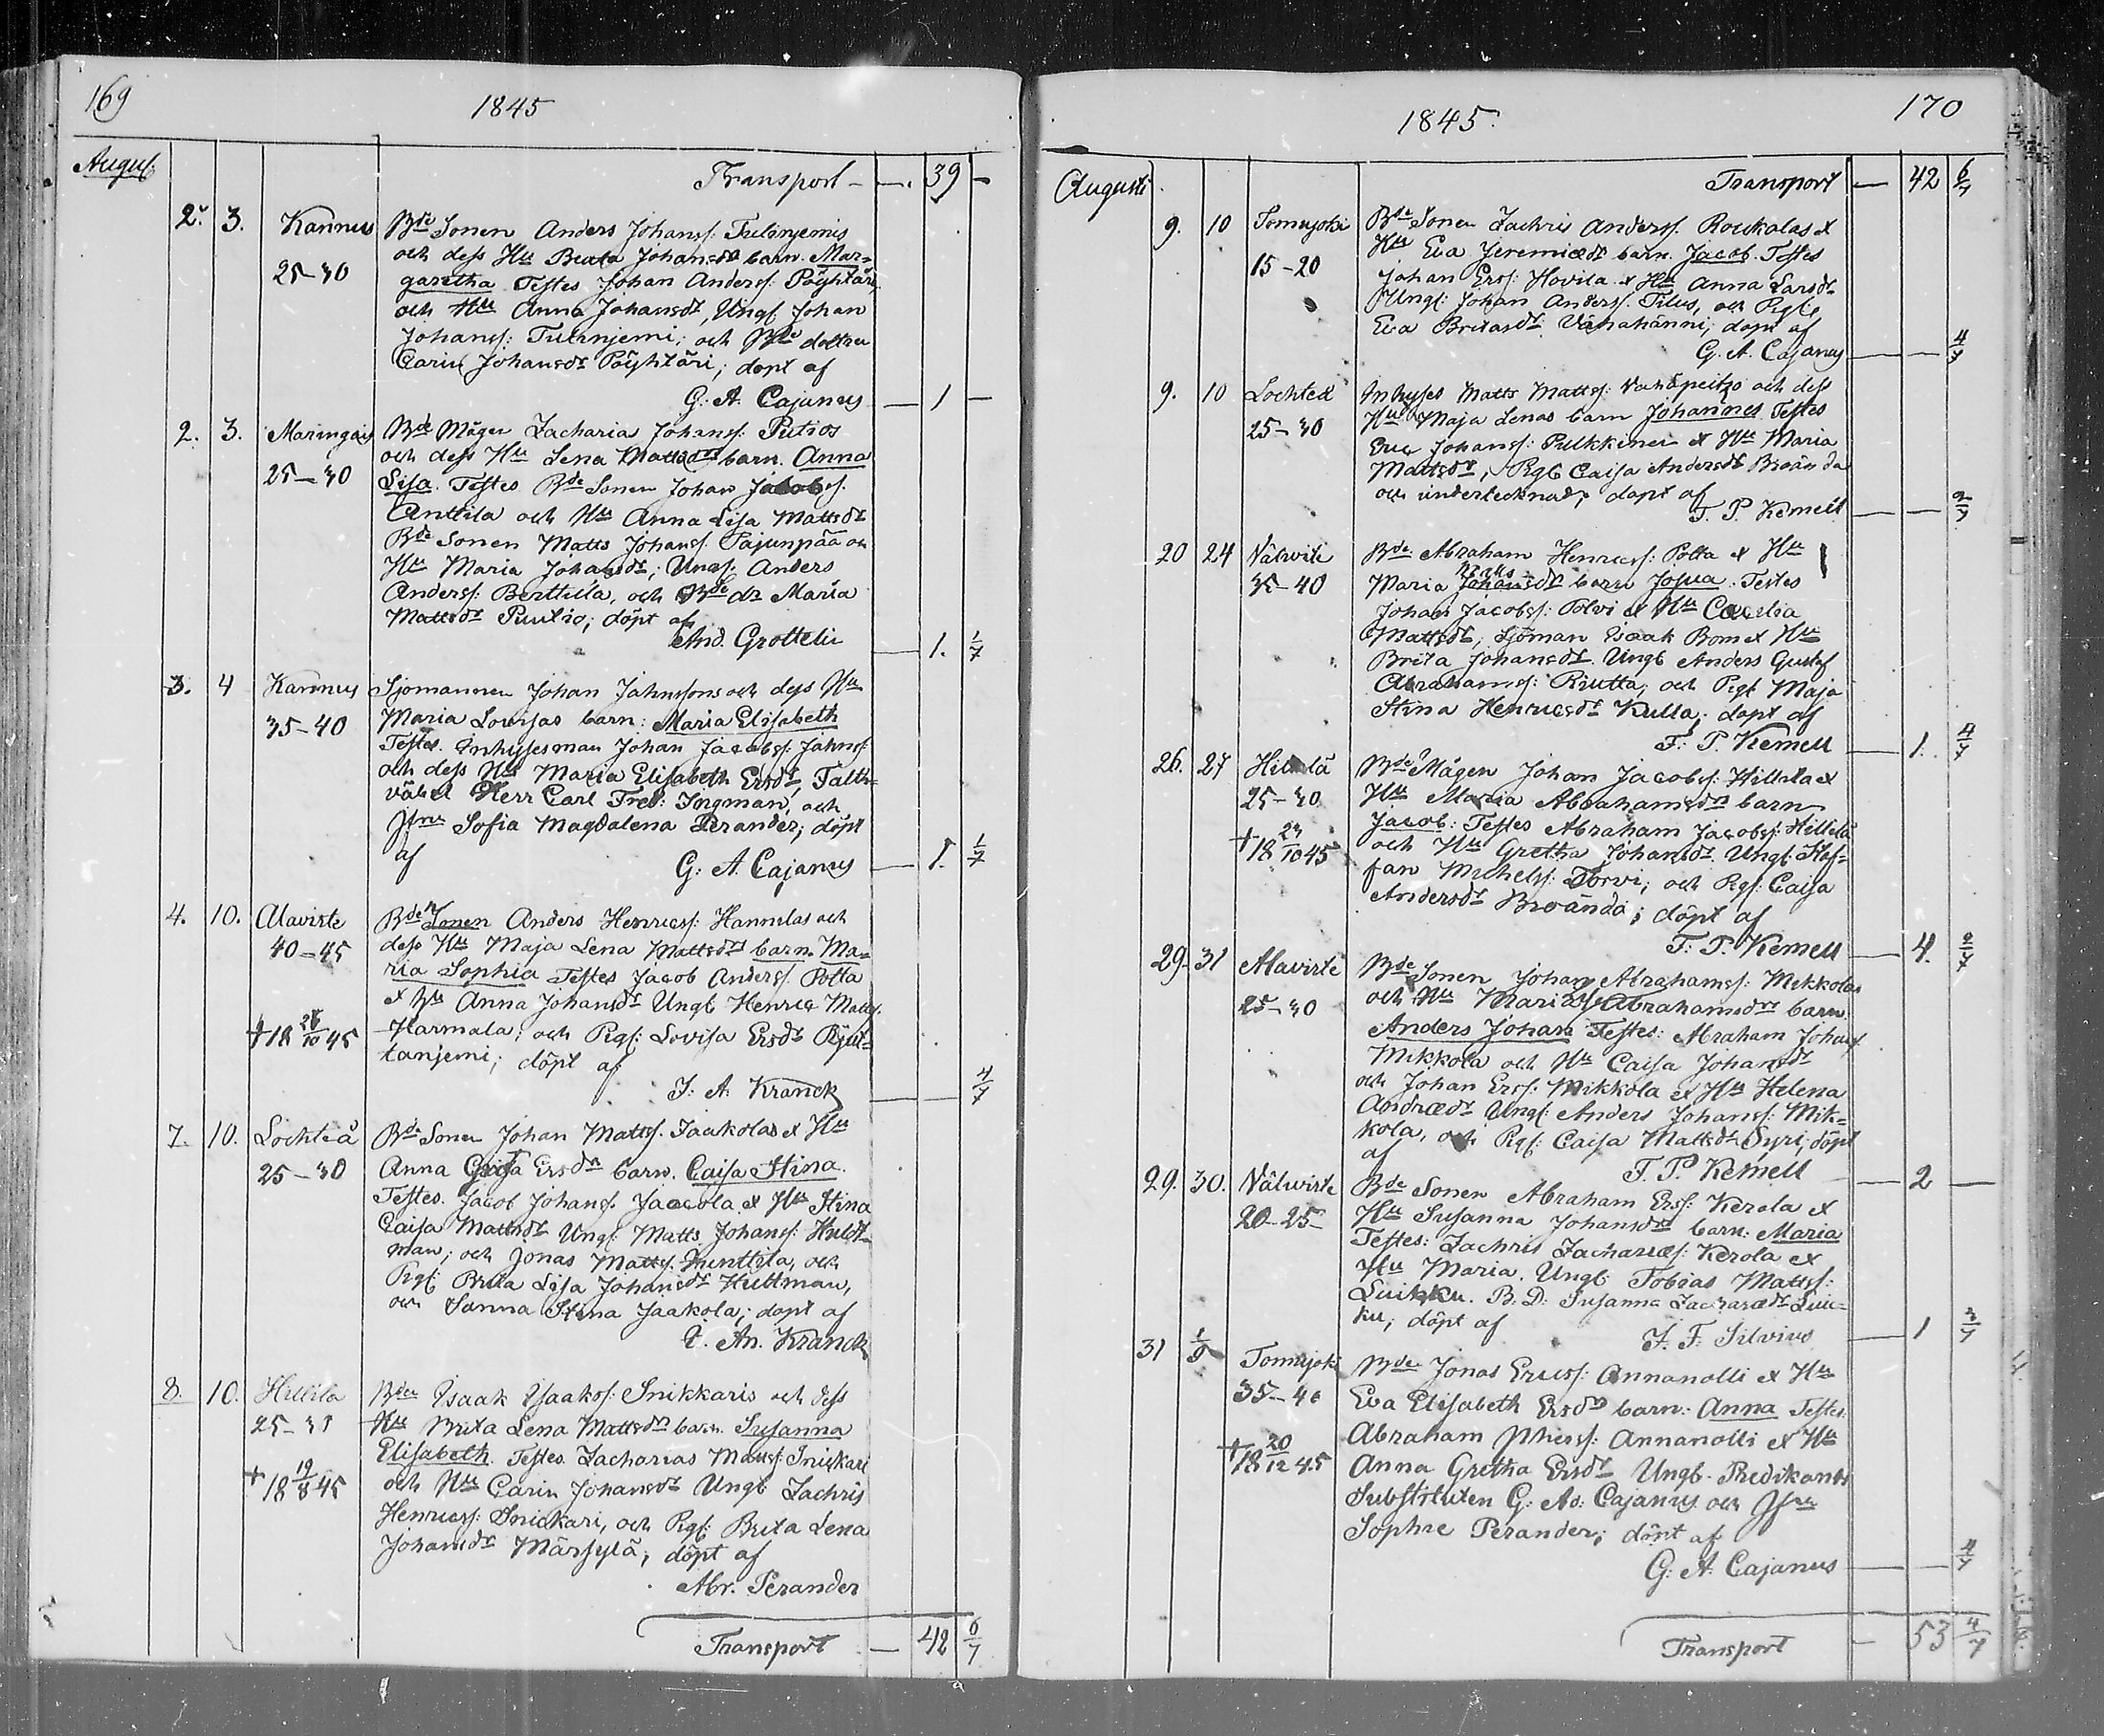 169
1845
Augus.
Transport — — 39 —
2. 3. Kannus Bde Sonen Anders Johanss. Tulenjemis
och dess Hu Beata Johansdrs barn. Mar=
25–30 garetha Testes Johan Anderss: Pöyhtäri,
och Hu Anna Johansdr, Ungl Johan
Johanss: Tulenjemi; och Bde dottren
Carin Johansdr Pöyhtäri; döpt af
G: A. Cajanus — 1 —
2. 3. Maringais Bde Mågen Zacharia Johanss: Putios
och dess Hu Lena Mattsdrs barn. Anna
25–30 Lisa. Testes Bde Sonen Johan Jacobss.
Anttila och Hu Anna Lisa Mattsdr
Bde Sonen Matts Johanss. Pajunpää och
Hu Maria Johansdr; Ungs: Anders
Anderss: Berttila, och Bde dr Maria
Mattsdr Puutio; döpt af
And. Grottelin — 1. 1/7
3. 4 Kannus Sjömannen Johan Jahnssons och dess Hu
35–40 Maria Lovisas barn: Maria Elisabeth
Testes. Inhyssesman Johan Jacobss: Jahnss:
och dess Hu Maria Elisabeth Ersdr, Fält=
väbel Herr Carl Fred: Singman, och
Jfru Sofia Magdalena Perander; döpt
af G: A. Cajanus — 1. 1/7
4. 10. Alaviste Bde Sonen Anders Henricss: Hannilas och
40–45 dess Hu Maja Lena Mattsdrs barn. Ma=
ria Sophia Testes Jacob Anderss. Potta
& Hu Anna Johansdr Ungl Henric Matss.
†18 28/10 45 Harmala; och Pigs: Lovisa Ersdr Rjut=
tanjemi; döpt af
J. A. Kranck — — 4/7
7. 10. Lochteå Bde Sonen Johan Mattss. Jaakolas & Hu
25–30 Anna Greta Ersdrs barn. Caisa Stina.
Testes. Jacob Johanss. Jaacola & Hu Stina
Caisa Mattsdr Ungs: Matts Johanss: Huldt=
man; och Jonas Mattss. Hunttila, och
Pigs: Brita Lisa Johansdr Hultman,
och Sanna Stina Jaakola; döpt af
An. Kranck
8. 10. Hillilä Bden Isaak Isaakss: Snikkaris och dess
25–30 Hu Brita Lena Mattsdrs barn. Susanna
Elisabeth. Testes Zacharias Matss: Snickari
†18 19/8 45 och Hu Carin Johansdr Ungl Zachris
Henricss: Snickari, och Pigs: Brita Lena
Johansdr Märsylä; döpt af
Abr. Perander
Transport — 42 6/7
170
1845.
Augusti
Transport — 42 6/7
9. 10 Tomujoki Bde Sonen Zachris Anderss. Roukalas &
Hu Eva Jeremiædr barn. Jacob. Testes
15–20 Johan Erss: Hovila & Hu Anna Larsdr
Ungs: Johan Anderss. Tilus, och Pigs:
Eva Britasdr Vänahänni; döpt af
G. A. Cajanus — — 4/7
9. 10 Lochteå Inhyses Matts Mattss: och dess
25–30 Hu Maja Lenas barn Johannes Testes
Eric Johanss: Pulkkinen & Hu Maria
Mattsdr; Pigs Caisa Andersdr Broända
och undertecknad; döpt af
F. P. Kemell — — 2/7
20 24 Välwirte Bde Abraham Henricss: Potta & Hu
35–40 Maria Johansdrs barn Josua. Testes
Johan Jacobss: Polvi & Hu Cæcilia
Mattsdr; Sjöman Isaak Bom & Hu
Brita Johansdr. Ungl Anders Gustaf
Abrahamss: Riutta; och Pigs Maja
Stina Henricsdr Kulla; döpt af
F: P. Kemell — 1. 4/7
26. 27 Hillilä Bde Mågen Johan Jacobss: Hillilä &
25–30 Hu Maria Abrahamsdrs barn
Jacob: Testes Abraham Jacobss: Hillilä
†18 23/10 45 och Hu Gretha Johansdr. Ungl: Staf=
fan Michelss: Torvi; och Pigs: Caisa
Andersdr Broända; döpt af
F: P. Kemell — 4. 2/7
29. 31 Alaviste Bde Sonen Johan Abrahamss: Mikkolas
25–30 och Hu Maria Abrahamsdrs barn.
Anders Johan Testes: Abraham Johanss
Mikkola och Hu Caisa Johansdr
och Johan Erss: Mikkola & Hu Helena
Andrædr Ungs: Anders Johanss: Mik=
kola, och Pigs: Caisa Mattsdr Syri; döpt
af F. P. Kemell — 2 —
29. 30. Välwirte Bde Sonen Abraham Erss: Kerola &
20–25 Hu Susanna Johansdrs barn: Maria
Testes: Zachris Zachariæs: Kerola &
Hu Maria. Ungl: Tobias Mattss:
Luikku. B. D: Susanna Zachariædr Luic=
ku; döpt af J. F: Silvius — 1 3/7
31 1/9 Tomujoki Bde Jonas Ericss: Annanolli & Hu
35–40 Eva Elisabeth Ersdrs barn: Anna Testes:
Abraham Annanolli & Hu
†18 20/12 45 Anna Gretha Ersdr Ungl. Predikants
Substituten G: Ad: Cajanus och Jfru
Sophie Perander; döpt af
G: A: Cajanus — — 4/7
Transport — 53 4/7